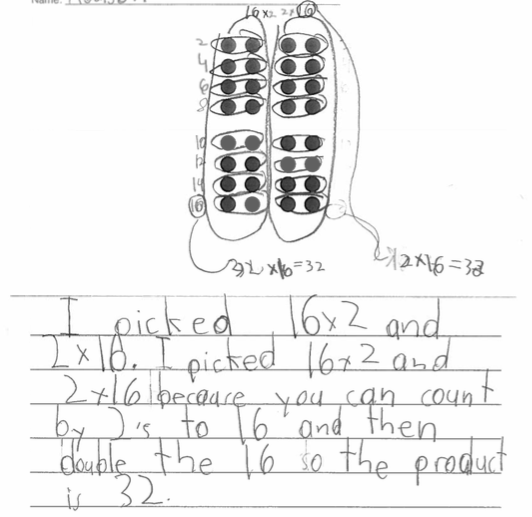 16x2 2x16
2
4
6
8
10
12
14
16
2 x16=32
2x16=32
I picked 16x2 and
2x16. I picked 16x2 and
2x16 because you can count
by 2's to 16 and then
double the 16 so the product
is 32.